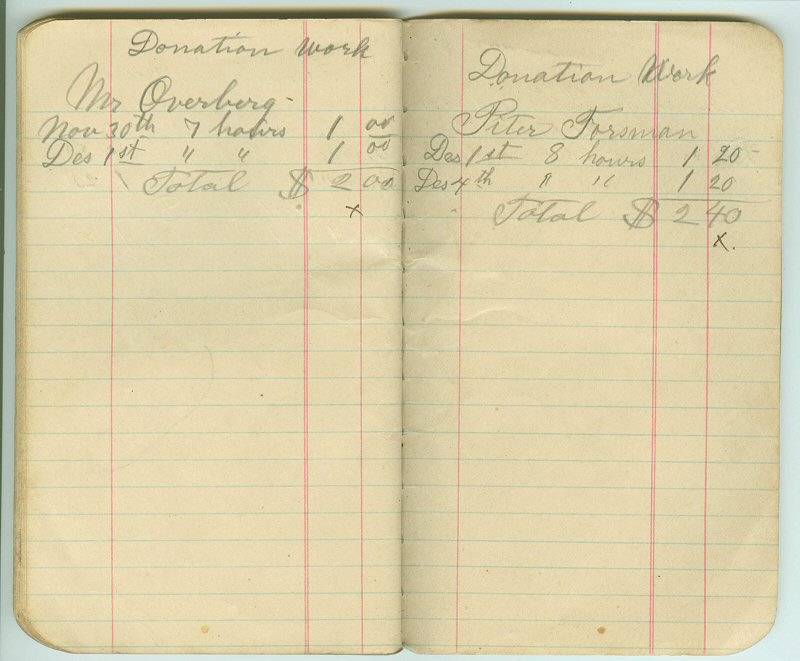 Donation Work
Mr Overberg-
Nov 30th 7 hours 1 00
Des 1st " " 1 00
Total $ 2 00
x
Donation Work
Piter Forsman
Des 1st 8 hours 1 20-
Des 4th " " 1 20
Total $ 2 40
x.